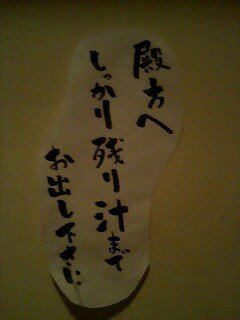 殿方へ
しっかり残り汁まで
お出し下さい